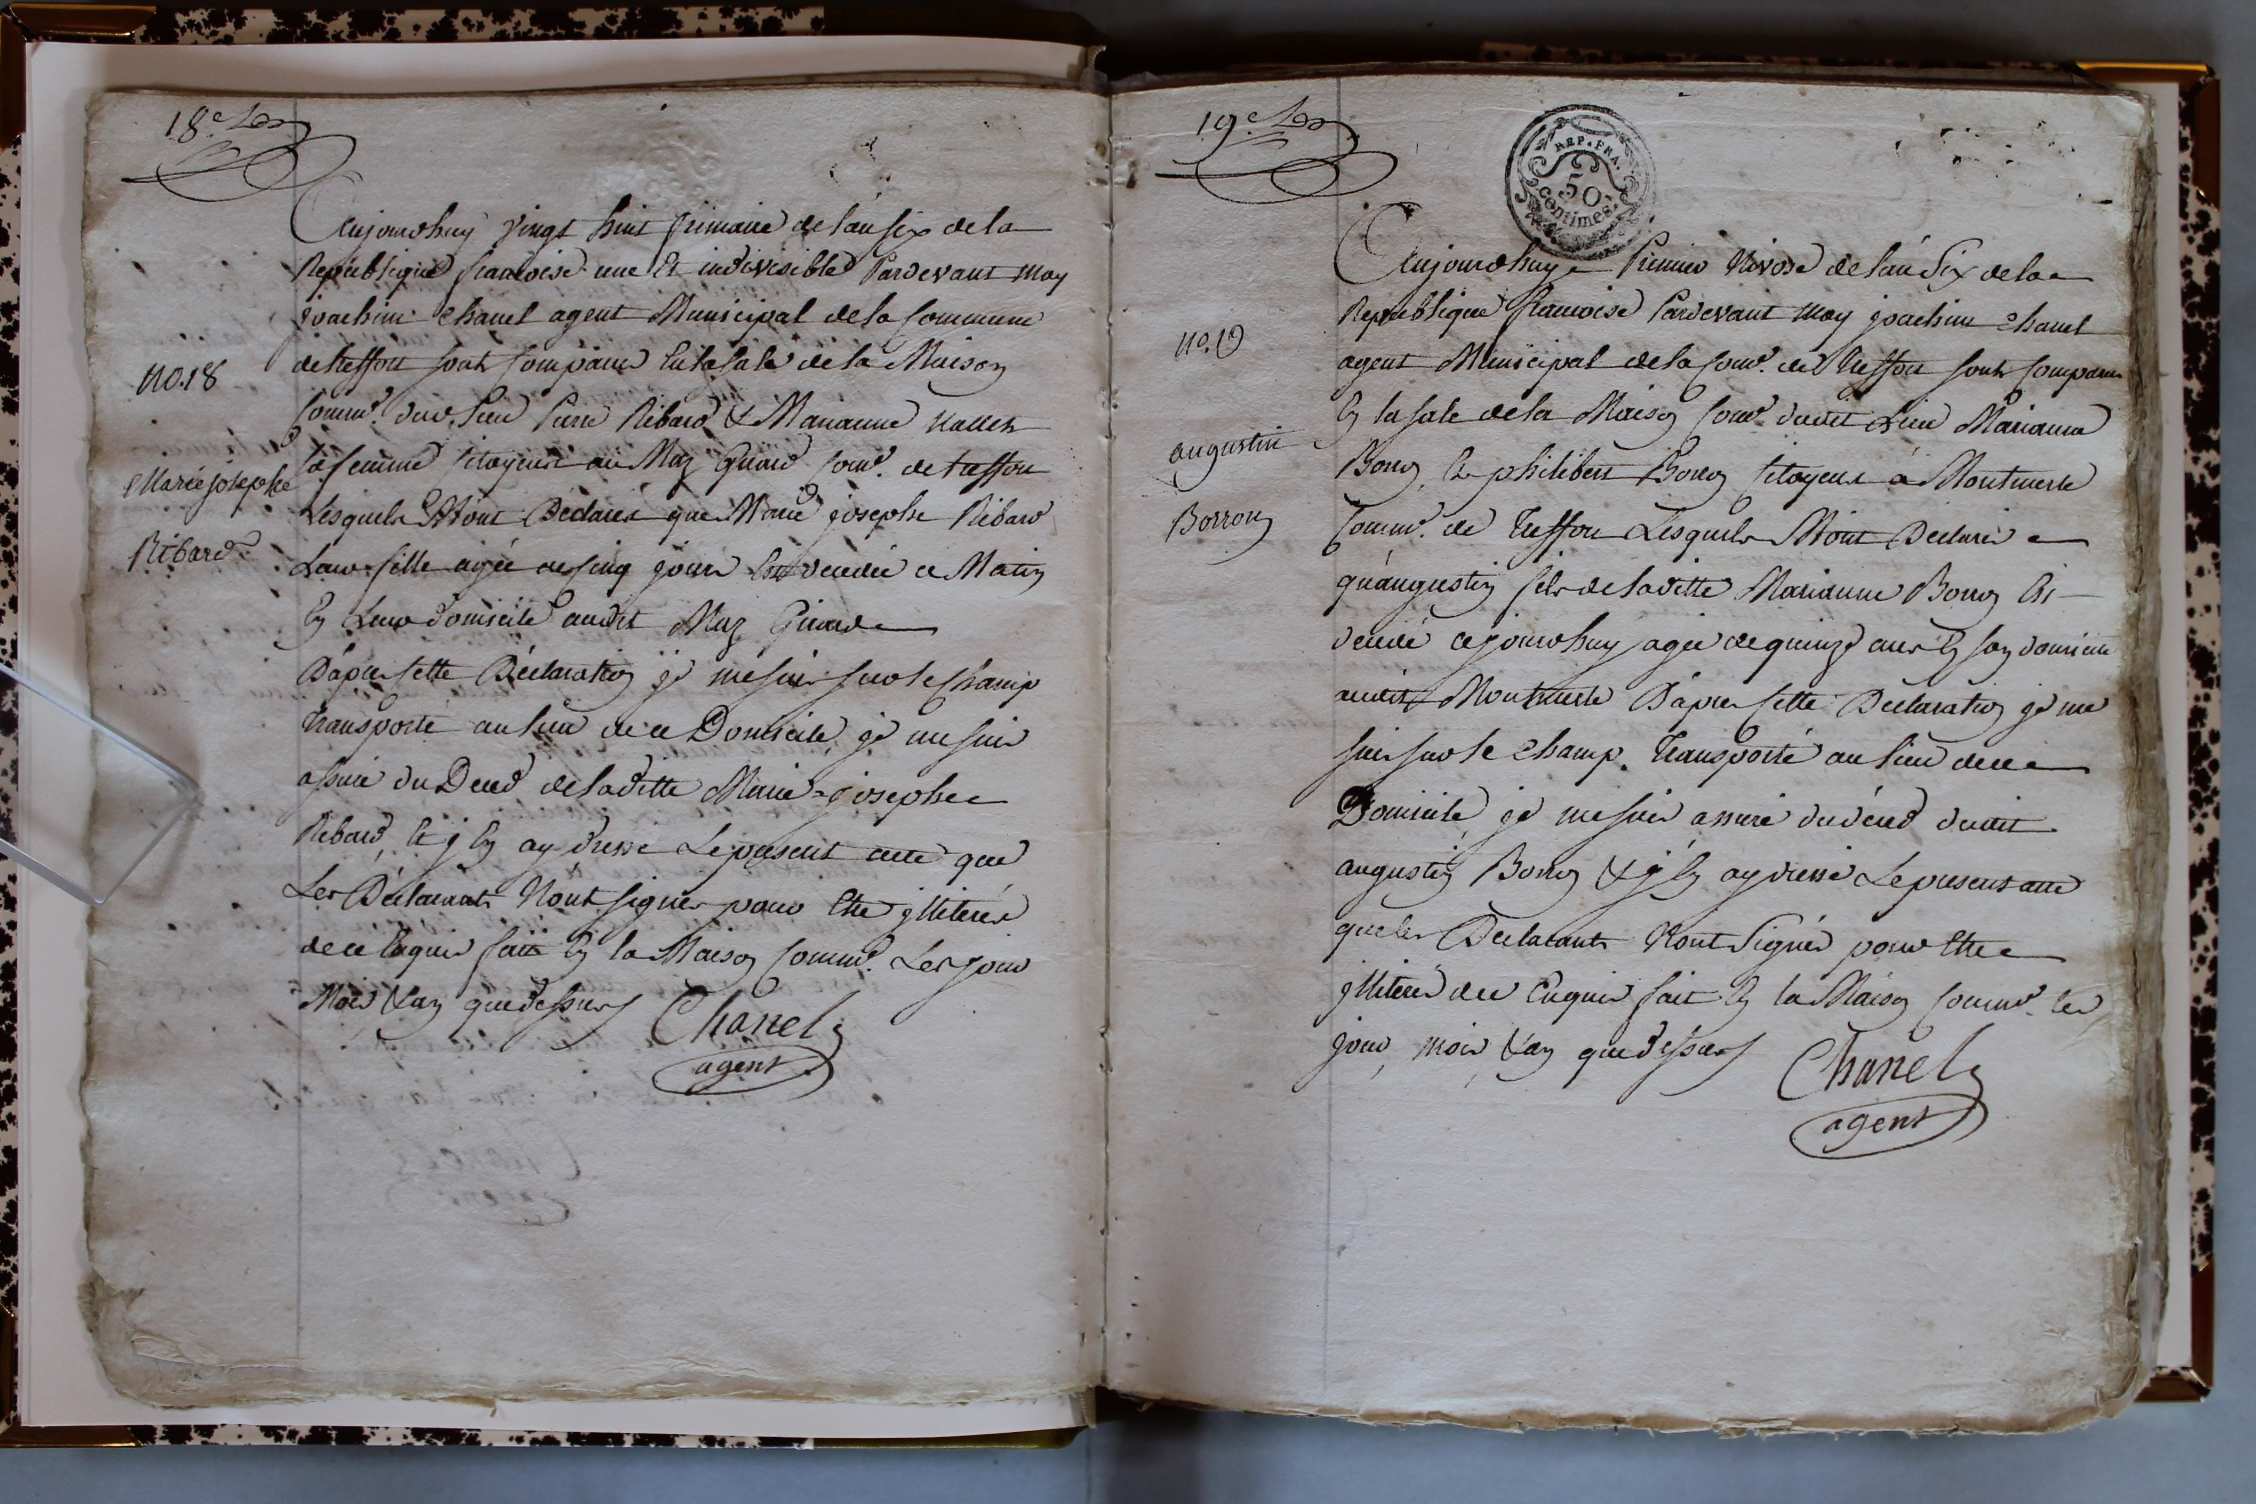 18e
Aujourdhuy vingt huit frimaire de l'an six de la
Republique francoise une et indivisible Pardevant moy
joachim Chanel agent Municipal de la Commune
de treffort sont comparus en la sale de la Maison
Comme. dud. lieu Pierre Ribard & Marianne
sa femme citoyens au Maz Girard come. de treffort
Lesquels M'ont Déclarés que Marie josephe Ribard
Leur fille agée de cinq jours est décédée ce Matin
En Leur domicile audit Maz Girard
D'après cette Déclaration je me suis sur le champ
transporté au lieu de ce Domicile, je me suis
assuré du Deces de laditte Marie-josephe
Ribard, et j'En ay dressé Le present acte que
Les Déclarants N'ont signés pour Etre jlliterés
de ce Enquis fait En la Maison Comme. Les jour
Mois & an que dessus
Chanel
agent
no. 18
Marie josephe
Ribard
19e
REP. FRA.
50
centimes
Aujourdhuy Premier Nivose de l'an Six de la
Republique francoise Pardevant moy joachim chanel
agent Municipal de la Come. de Treffort sont comparus
En la sale de la Maison Come. dudit Lieu Marianne
Borron, & philibert Borron citoyens a Montmerle
Comme. de Treffort Lesquels M'ont Declarés
qu'augustin fils de laditte Marianne Borron Est
décédé cejourdhuy agée de quinze ans En son domicile
audit Montmerle D'après cette Declaration je me
suis sur le champ. Transporté au lieu de ce
Domicile, je me suis assuré du décés dudit
augustin Borron & j'En ay dressé Le present acte
que les Declarants N'ont Signés pour Etre
jlliterés de ce Enquis fait En la Maison Comme. les
jour, mois, & an que dessus
Chanel
agent
no. 19
augustin
Borron